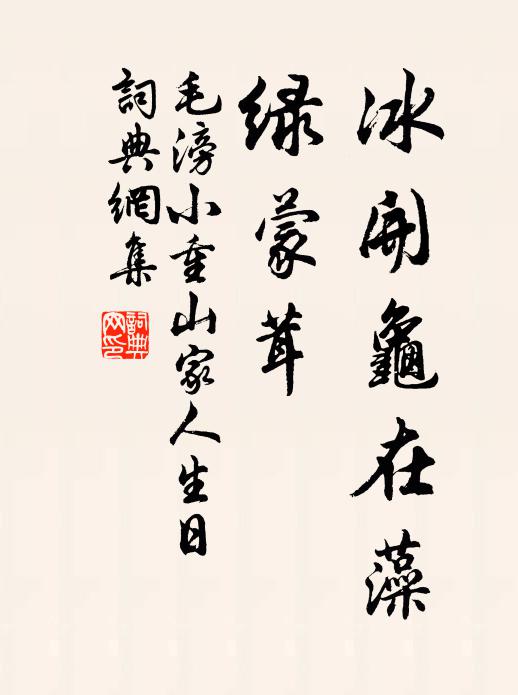 冰開龜在藻
綠蒙茸
毛滂小重山家人生日
詞典網集
詞典
网印